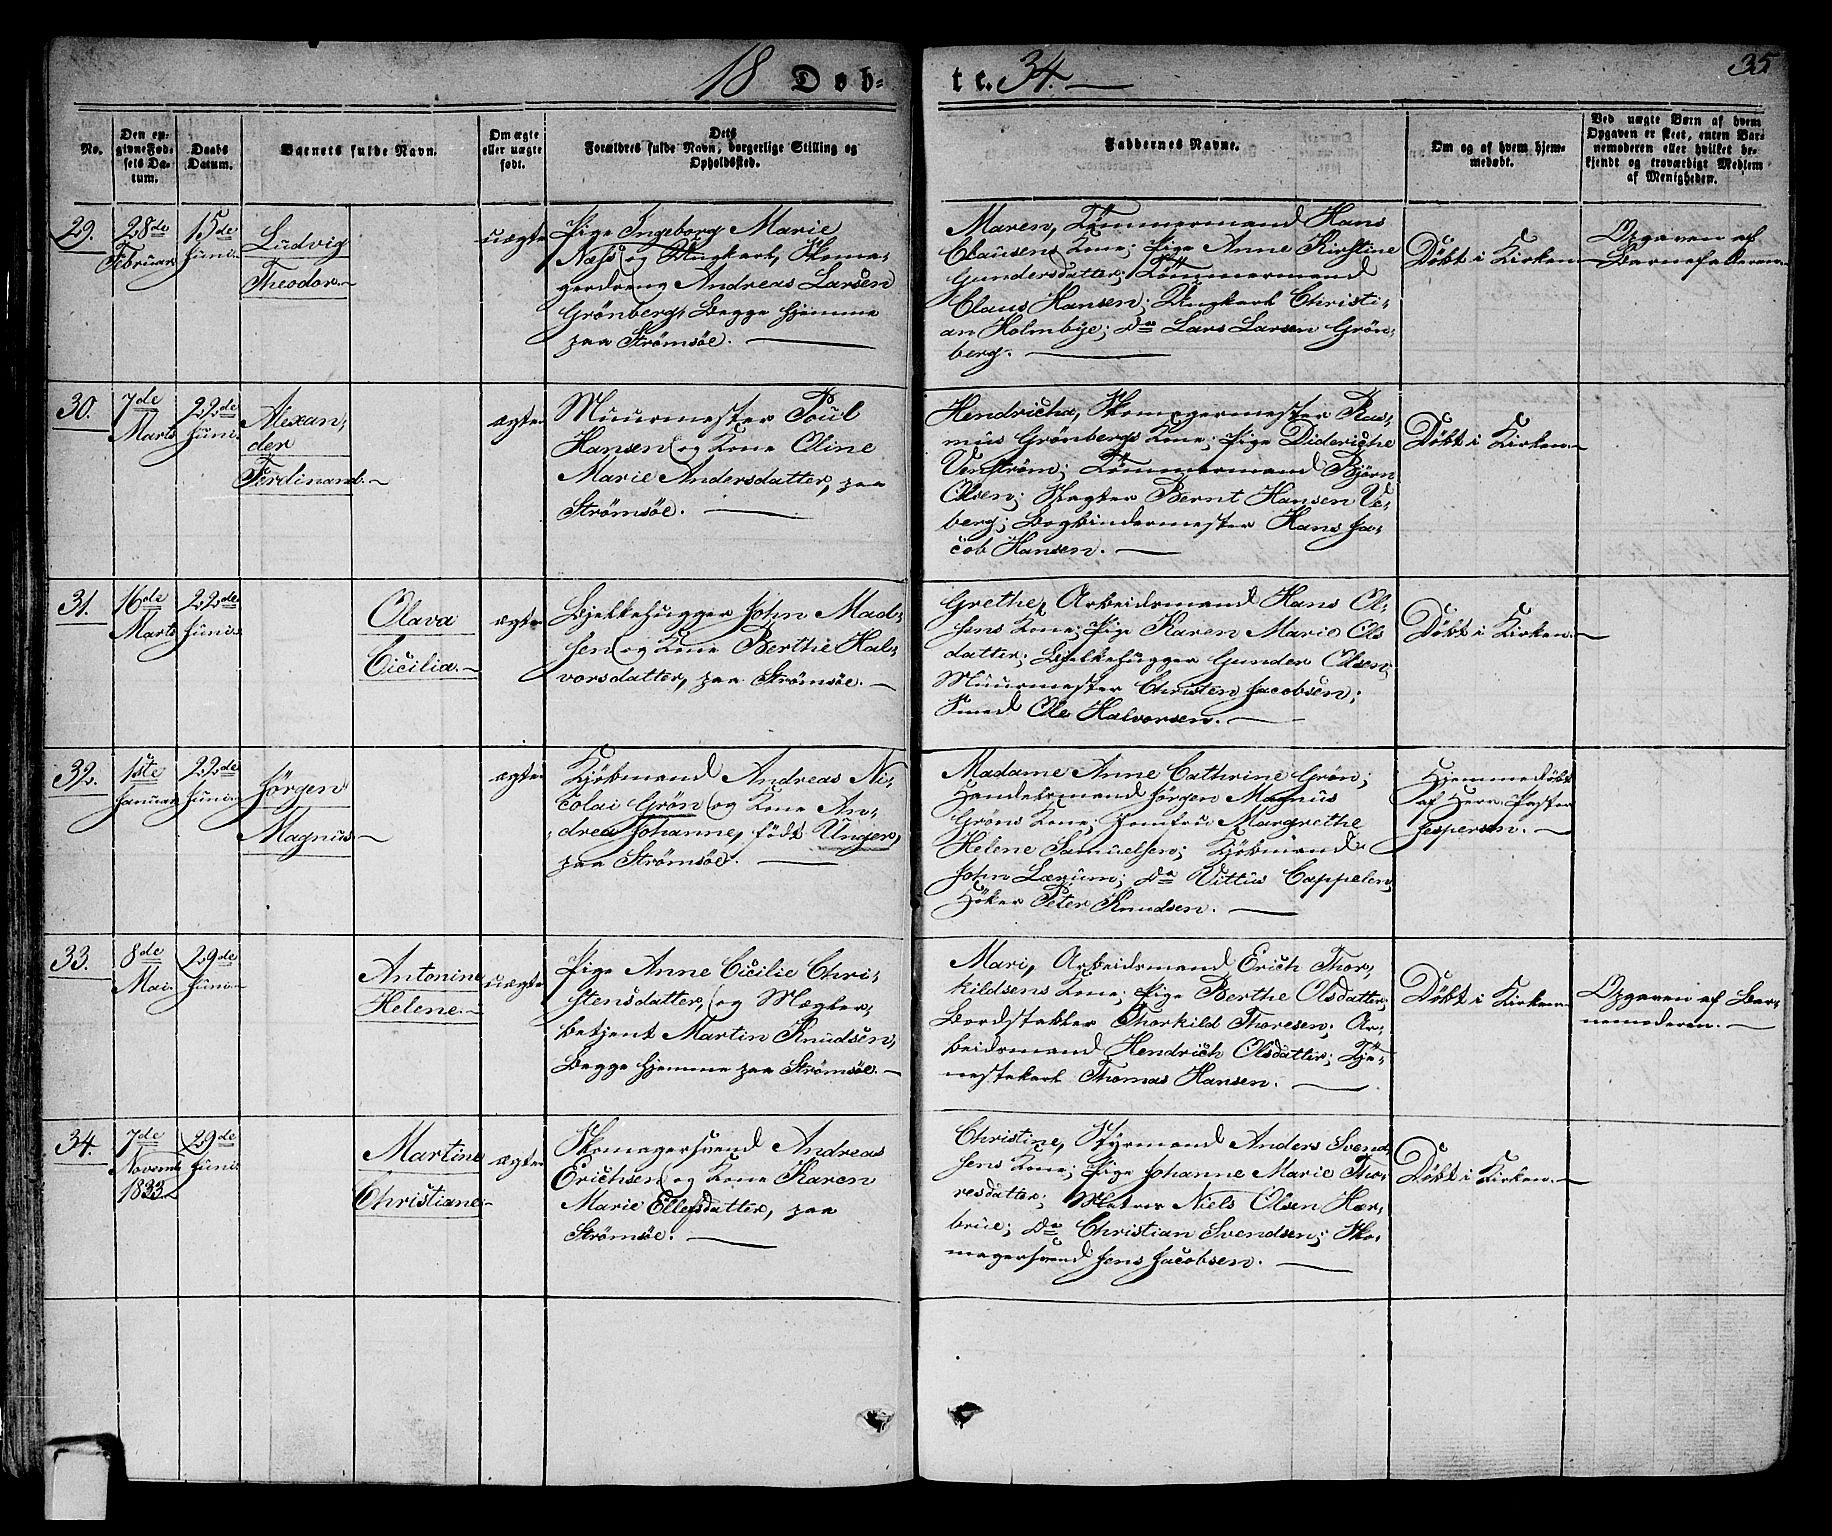 18 Døb-
te. 34.
35
No.
Den en-
givne Fød-
sels Da-
tum.
Daabs
Datum.
Barnets fulde Navn.
Om ægte
eller uægte
født.
Dets
Forældres fulde Navn, borgerlige Stilling og
Opholdssted.
Faddernes Navne.
Om og af hvem hjem-
medøbt.
Ved uægte Børn af hvem
Opgaven er skeet, enten Bar-
nemoderen eller hvilket be-
kjendt og troværdigt Medlem
af Menigheden.
29.
28de
Februar
15de
Juni
Ludvig
Theodor.
uægte
Pige Ingeborg Marie
Næss og Ungkarl, Skoma-
gerdreng Andreas Larsen
Grönberg, Begge hjemme
paa Strömsöe.
Maren, Tömmermand Hans
Clausens Kone; Pige Anne Kirstine
Gundersdatter; Tömmermand
Claus Hansen; Ungkarl Christi-
an Holmbye; Do Lars Larsen Grön-
berg.
Döbt i Kirken
Opgaven af
Barnefaderen
30.
7de
Marts
22de
Juni
Alexan-
der
Ferdinand.
ægte
Muurmester Poul
Hansen og Kone Oline
Marie Andersdatter, paa
Strömsöe.
Hendricha, Skomagermester Ras-
mus Grönbergs Kone; Pige Dideriche
Venström; Tömmermand Björn
Olsen; Vægter Bernt Hansen Ve-
berg; Bogbindermester Hans Ja-
cob Hansen.
Döbt i Kirken
31.
16de
Marts
22de
Juni
Olava
Cicilia.
ægte
Bjelkehugger John Mad-
sen og Kone Berthe Hal-
vorsdatter, paa Strömsöe.
Grethe, Arbeidsmand Hans Ol-
sens Kone; Pige Karen Marie Ols
datter; Bjelkehugger Gunder Olsen;
Muurmester Christen Jacobsen;
Smed Ole Halvorsen.
Döbt i Kirken.
32.
1ste
Januar
22de
Juni
Jörgen
Magnus
ægte
Kjöbmand Andreas Ni-
colai Grön og Kone An-
drea Johanne, födt Unger,
paa Strömsöe.
Madame Anne Cathrine Grön;
Handelsmand Jörgen Magnus
Gröns Kone; Jomfru Margrethe
Helene Samuelsen; Kjöbmand
John Lærum; Do Vittus Cappelen;
Höker Peter Knudsen.
Hjemmedöbt
af Herr Pastor
Jespersen.
33.
8de
Mai
29de
Juni
Antonine
Helene.
uægte
Pige Anne Cicilie Chri-
stensdatter, og Mægler-
betjent Martin Knudsen,
Begge hjemme paa Strömsöe.
Mari, Arbeidsmand Erich Thor-
kildsens Kone; Pige Berthe Olsdatter;
Bordstabler Thorkild Thoresen; Ar-
beidsmand Hendrich Olsdatter; Tje-
nestekarl Thomas Hansen.
Döbt i Kirken
Opgaven af Bar-
nemoderen.
34.
7de
Novemb
1833
29de
Juni
Martine
Christiane
ægte
Skomagersvend Andreas
Erichsen og Kone Karen
Marie Ellefsdatter, paa
Strömsöe.
Christine, Styrmand Anders Svend-
sens Kone; Pige Johanne Marie Tho-
resdatter; Matros Niels Olsen Hær-
brue; Do Christian Svendsen; Sko-
magersvend Jens Jacobsen.
Döbt i Kirken.